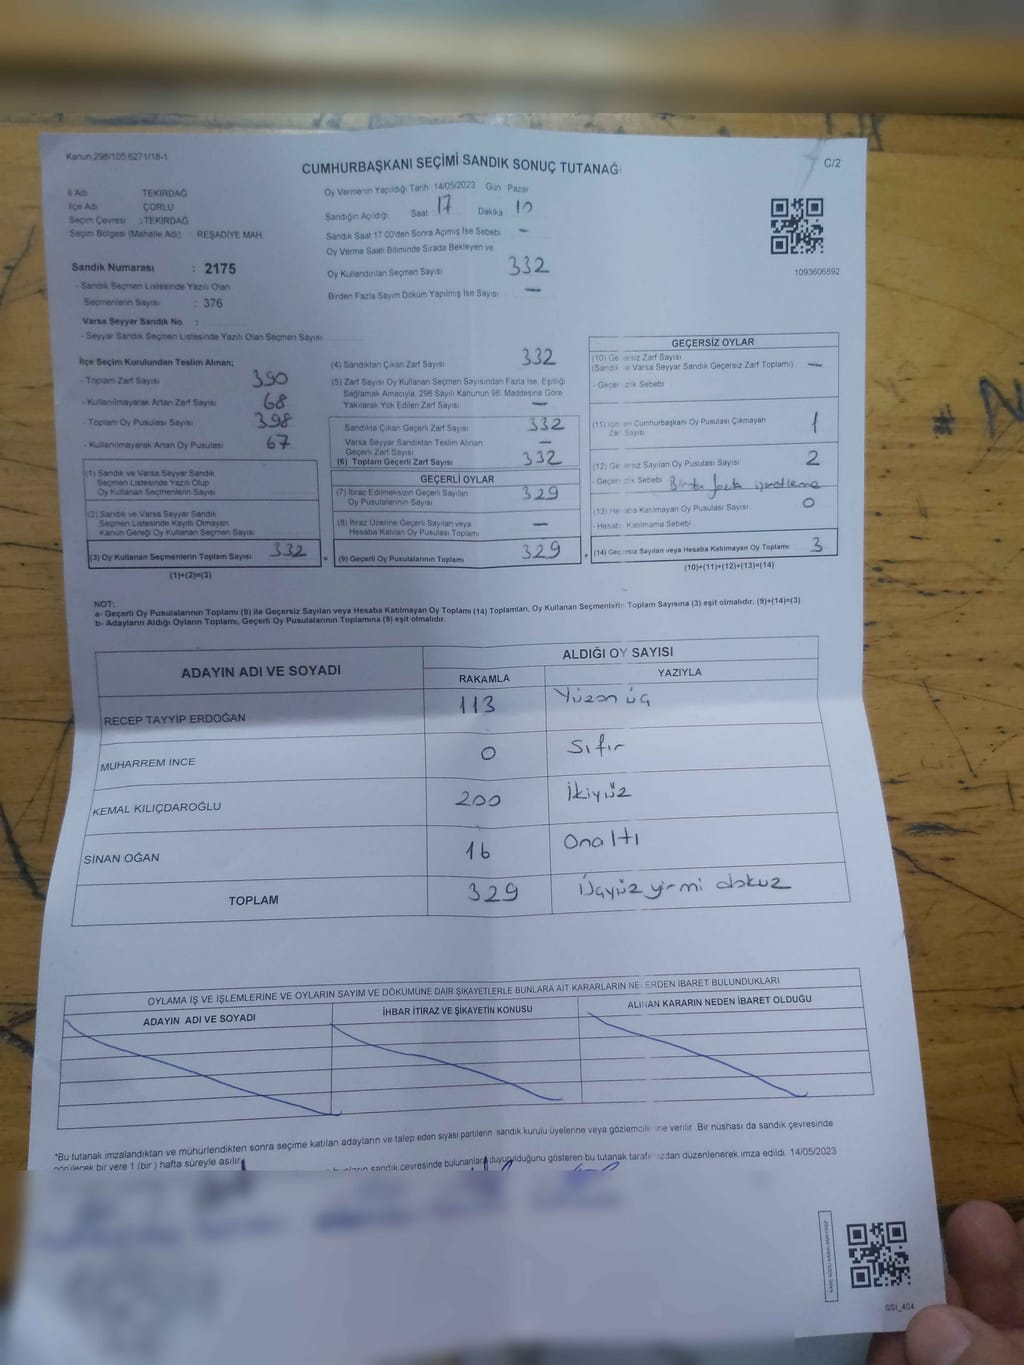 Kanun 298/105 6271/18-1
CUMHURBAŞKANI SEÇİMİ SANDIK SONUÇ TUTANAĞI
C/2
İl Adı TEKİRDAĞ
İlçe Adı ÇORLU
Seçim Çevresi : TEKİRDAĞ
Seçim Bölgesi (Mahalle Adı) : REŞADİYE MAH.
Oy Vermenin Yapıldığı Tarih 14/05/2023 Gün Pazar
Sandığın Açıldığı Saat 17 Dakika 10
Sandık Saat 17 00'den Sonra Açılmış İse Sebebi -
Oy Verme Saati Bitiminde Sırada Bekleyen ve
Oy Kullandırılan Seçmen Sayısı 332
Birden Fazla Sayım Döküm Yapılmış İse Sayısı -
1093606592
Sandık Numarası : 2175
- Sandık Seçmen Listesinde Yazılı Olan
Seçmenlerin Sayısı : 376
Varsa Seyyar Sandık No :
- Seyyar Sandık Seçmen Listesinde Yazılı Olan Seçmen Sayısı :
İlçe Seçim Kurulundan Teslim Alınan;
- Toplam Zarf Sayısı 390
- Kullanılmayarak Artan Zarf Sayısı 68
- Toplam Oy Pusulası Sayısı 398
- Kullanılmayarak Artan Oy Pusulası 67
(1) Sandık ve Varsa Seyyar Sandık
Seçmen Listesinde Yazılı Olup
Oy Kullanan Seçmenlerin Sayısı
(2) Sandık ve Varsa Seyyar Sandık
Seçmen Listesinde Kayıtlı Olmayan
Kanun Gereği Oy Kullanan Seçmen Sayısı
(3) Oy Kullanan Seçmenlerin Toplam Sayısı 332
(1)+(2)=(3)
(4) Sandıktan Çıkan Zarf Sayısı 332
(5) Zarf Sayısı Oy Kullanan Seçmen Sayısından Fazla İse, Eşitliği
Sağlamak Amacıyla, 298 Sayılı Kanunun 98. Maddesine Göre
Yakılarak Yok Edilen Zarf Sayısı -
Sandıkta Çıkan Geçerli Zarf Sayısı 332
Varsa Seyyar Sandıktan Teslim Alınan
Geçerli Zarf Sayısı -
(6) Toplam Geçerli Zarf Sayısı 332
GEÇERLİ OYLAR
(7) İtiraz Edilmeksizin Geçerli Sayılan
Oy Pusulalarının Sayısı 329
(8) İtiraz Üzerine Geçerli Sayılan veya
Hesaba Katılan Oy Pusulası Toplamı -
(9) Geçerli Oy Pusulalarının Toplamı 329
GEÇERSİZ OYLAR
(10) Geçersiz Zarf Sayısı
(Sandık ve Varsa Seyyar Sandık Geçersiz Zarf Toplamı) -
- Geçersizlik Sebebi
(11) İçinden Cumhurbaşkanı Oy Pusulası Çıkmayan
Zarf Sayısı 1
(12) Geçersiz Sayılan Oy Pusulası Sayısı 2
- Geçersizlik Sebebi Birden fazla işaretleme
(13) Hesaba Katılmayan Oy Pusulası Sayısı 0
- Hesaba Katılmama Sebebi
(14) Geçersiz Sayılan veya Hesaba Katılmayan Oy Toplamı 3
(10)+(11)+(12)+(13)=(14)
NOT:
a- Geçerli Oy Pusulalarının Toplamı (9) ile Geçersiz Sayılan veya Hesaba Katılmayan Oy Toplamı (14) Toplamları, Oy Kullanan Seçmenlerin Toplam Sayısına (3) eşit olmalıdır. (9)+(14)=(3)
b- Adayların Aldığı Oyların Toplamı, Geçerli Oy Pusulalarının Toplamına (9) eşit olmalıdır.
ADAYIN ADI VE SOYADI ALDIĞI OY SAYISI
RAKAMLA YAZIYLA
RECEP TAYYİP ERDOĞAN 113 Yüzon üç
MUHARREM İNCE 0 Sıfır
KEMAL KILIÇDAROĞLU 200 İkiyüz
SİNAN OĞAN 16 Onaltı
TOPLAM 329 Üçyüz yirmi dokuz
OYLAMA İŞ VE İŞLEMLERİNE VE OYLARIN SAYIM VE DÖKÜMÜNE DAİR ŞİKAYETLERLE BUNLARA AİT KARARLARIN NELERDEN İBARET BULUNDUKLARI
ADAYIN ADI VE SOYADI İHBAR İTİRAZ VE ŞİKAYETİN KONUSU ALINAN KARARIN NEDEN İBARET OLDUĞU
*Bu tutanak imzalandıktan ve mühürlendikten sonra seçime katılan adayların ve talep eden siyasi partilerin sandık kurulu üyelerine veya gözlemcilerine verilir. Bir nüshası da sandık çevresinde
görülecek bir yere 1 (bir) hafta süreyle asılır. sandık çevresinde bulunanlara duyurulduğunu gösteren bu tutanak tarafımızdan düzenlenerek imza edildi. 14/05/2023
SSI_404
# N